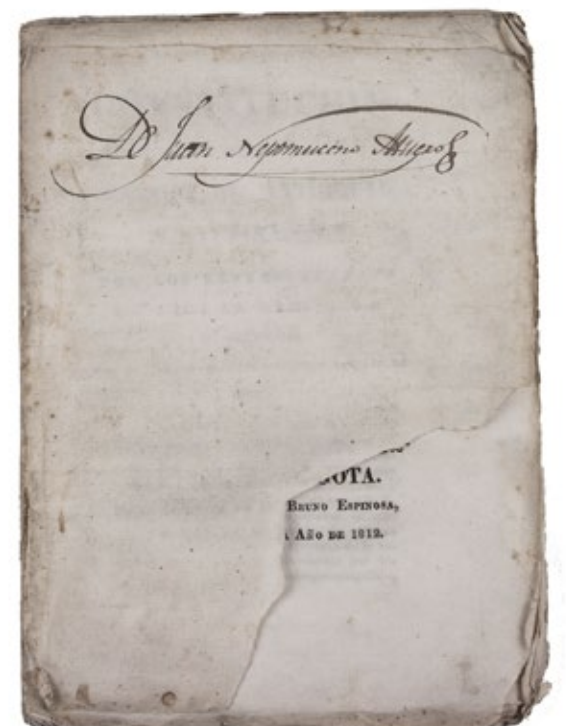 Dr Juan Nepomuceno Azuero
GOTA.
BRUNO ESPINOSA,
AÑO DE 1812.